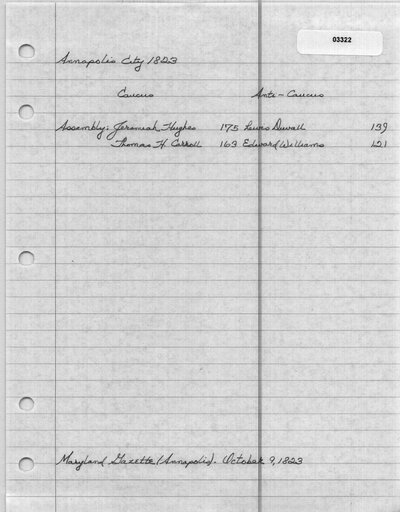 03322
Annapolis City 1823
Caucus Anti-Caucus
Assembly: Jeremiah Hughes 175 Lewis Duvall 139
Thomas H. Carroll 163 Edward Williams 121
Maryland Gazette (Annapolis). October 9, 1823